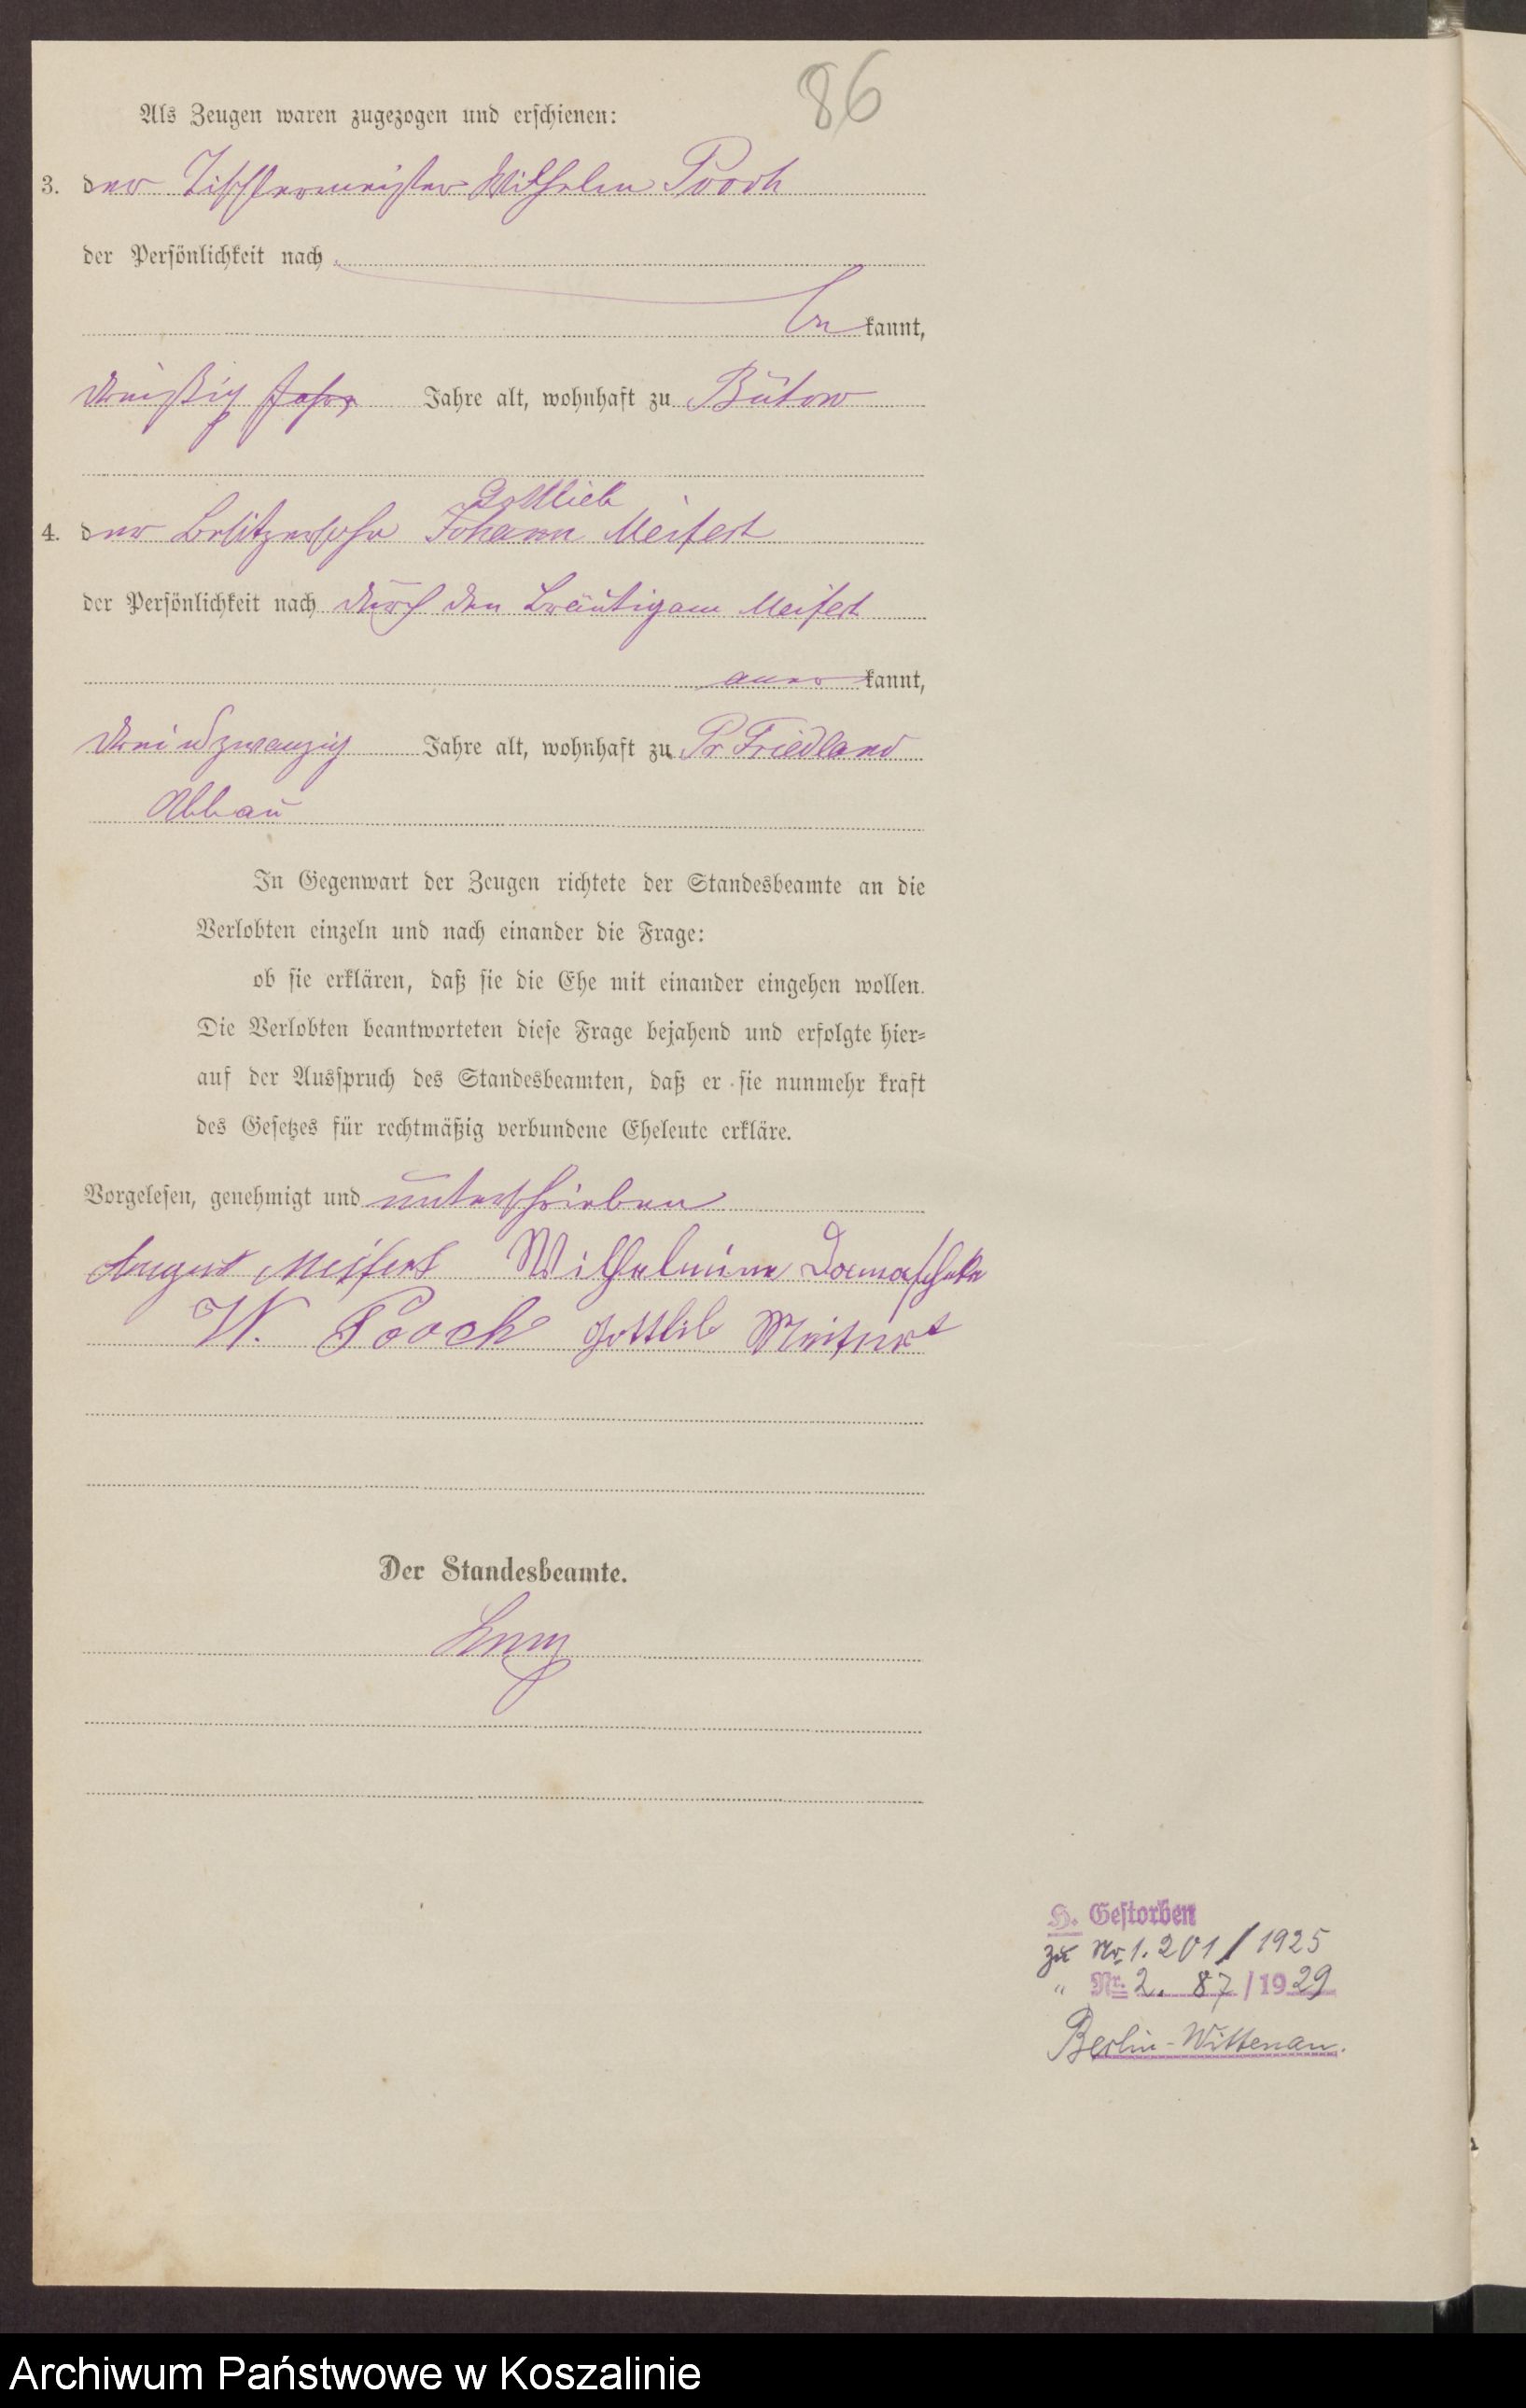 86
Als Zeugen waren zugezogen und erschienen:
3. der Tischlermeister Wilhelm Pooch
der Persönlichkeit nach
be kannt,
dreißig Jahre Jahre alt, wohnhaft zu Bütow
Gottlieb
4. der Besitzersohn Johann Meifert
der Persönlichkeit nach durch den Bräutigam Meifert
aner kannt,
drei u zwanzig Jahre alt, wohnhaft zu Pr Friedland
Abbau
In Gegenwart der Zeugen richtete der Standesbeamte an die
Verlobten einzeln und nach einander die Frage:
ob sie erklären, daß sie die Ehe mit einander eingehen wollen.
Die Verlobten beantworteten diese Frage bejahend und erfolgte hier=
auf der Ausspruch des Standesbeamten, daß er sie nunmehr kraft
des Gesetzes für rechtmäßig verbundene Eheleute erkläre.
Vorgelesen, genehmigt und unterschrieben
August Meifert Wilhelmine Damaschke
W. Pooch Gottlib Meifert
Der Standesbeamte.
H. Gestorben
zu Nr 1. 201/1925
" Nr. 2. 87/1929
Berlin-Wittenau.
Archiwum Państwowe w Koszalinie